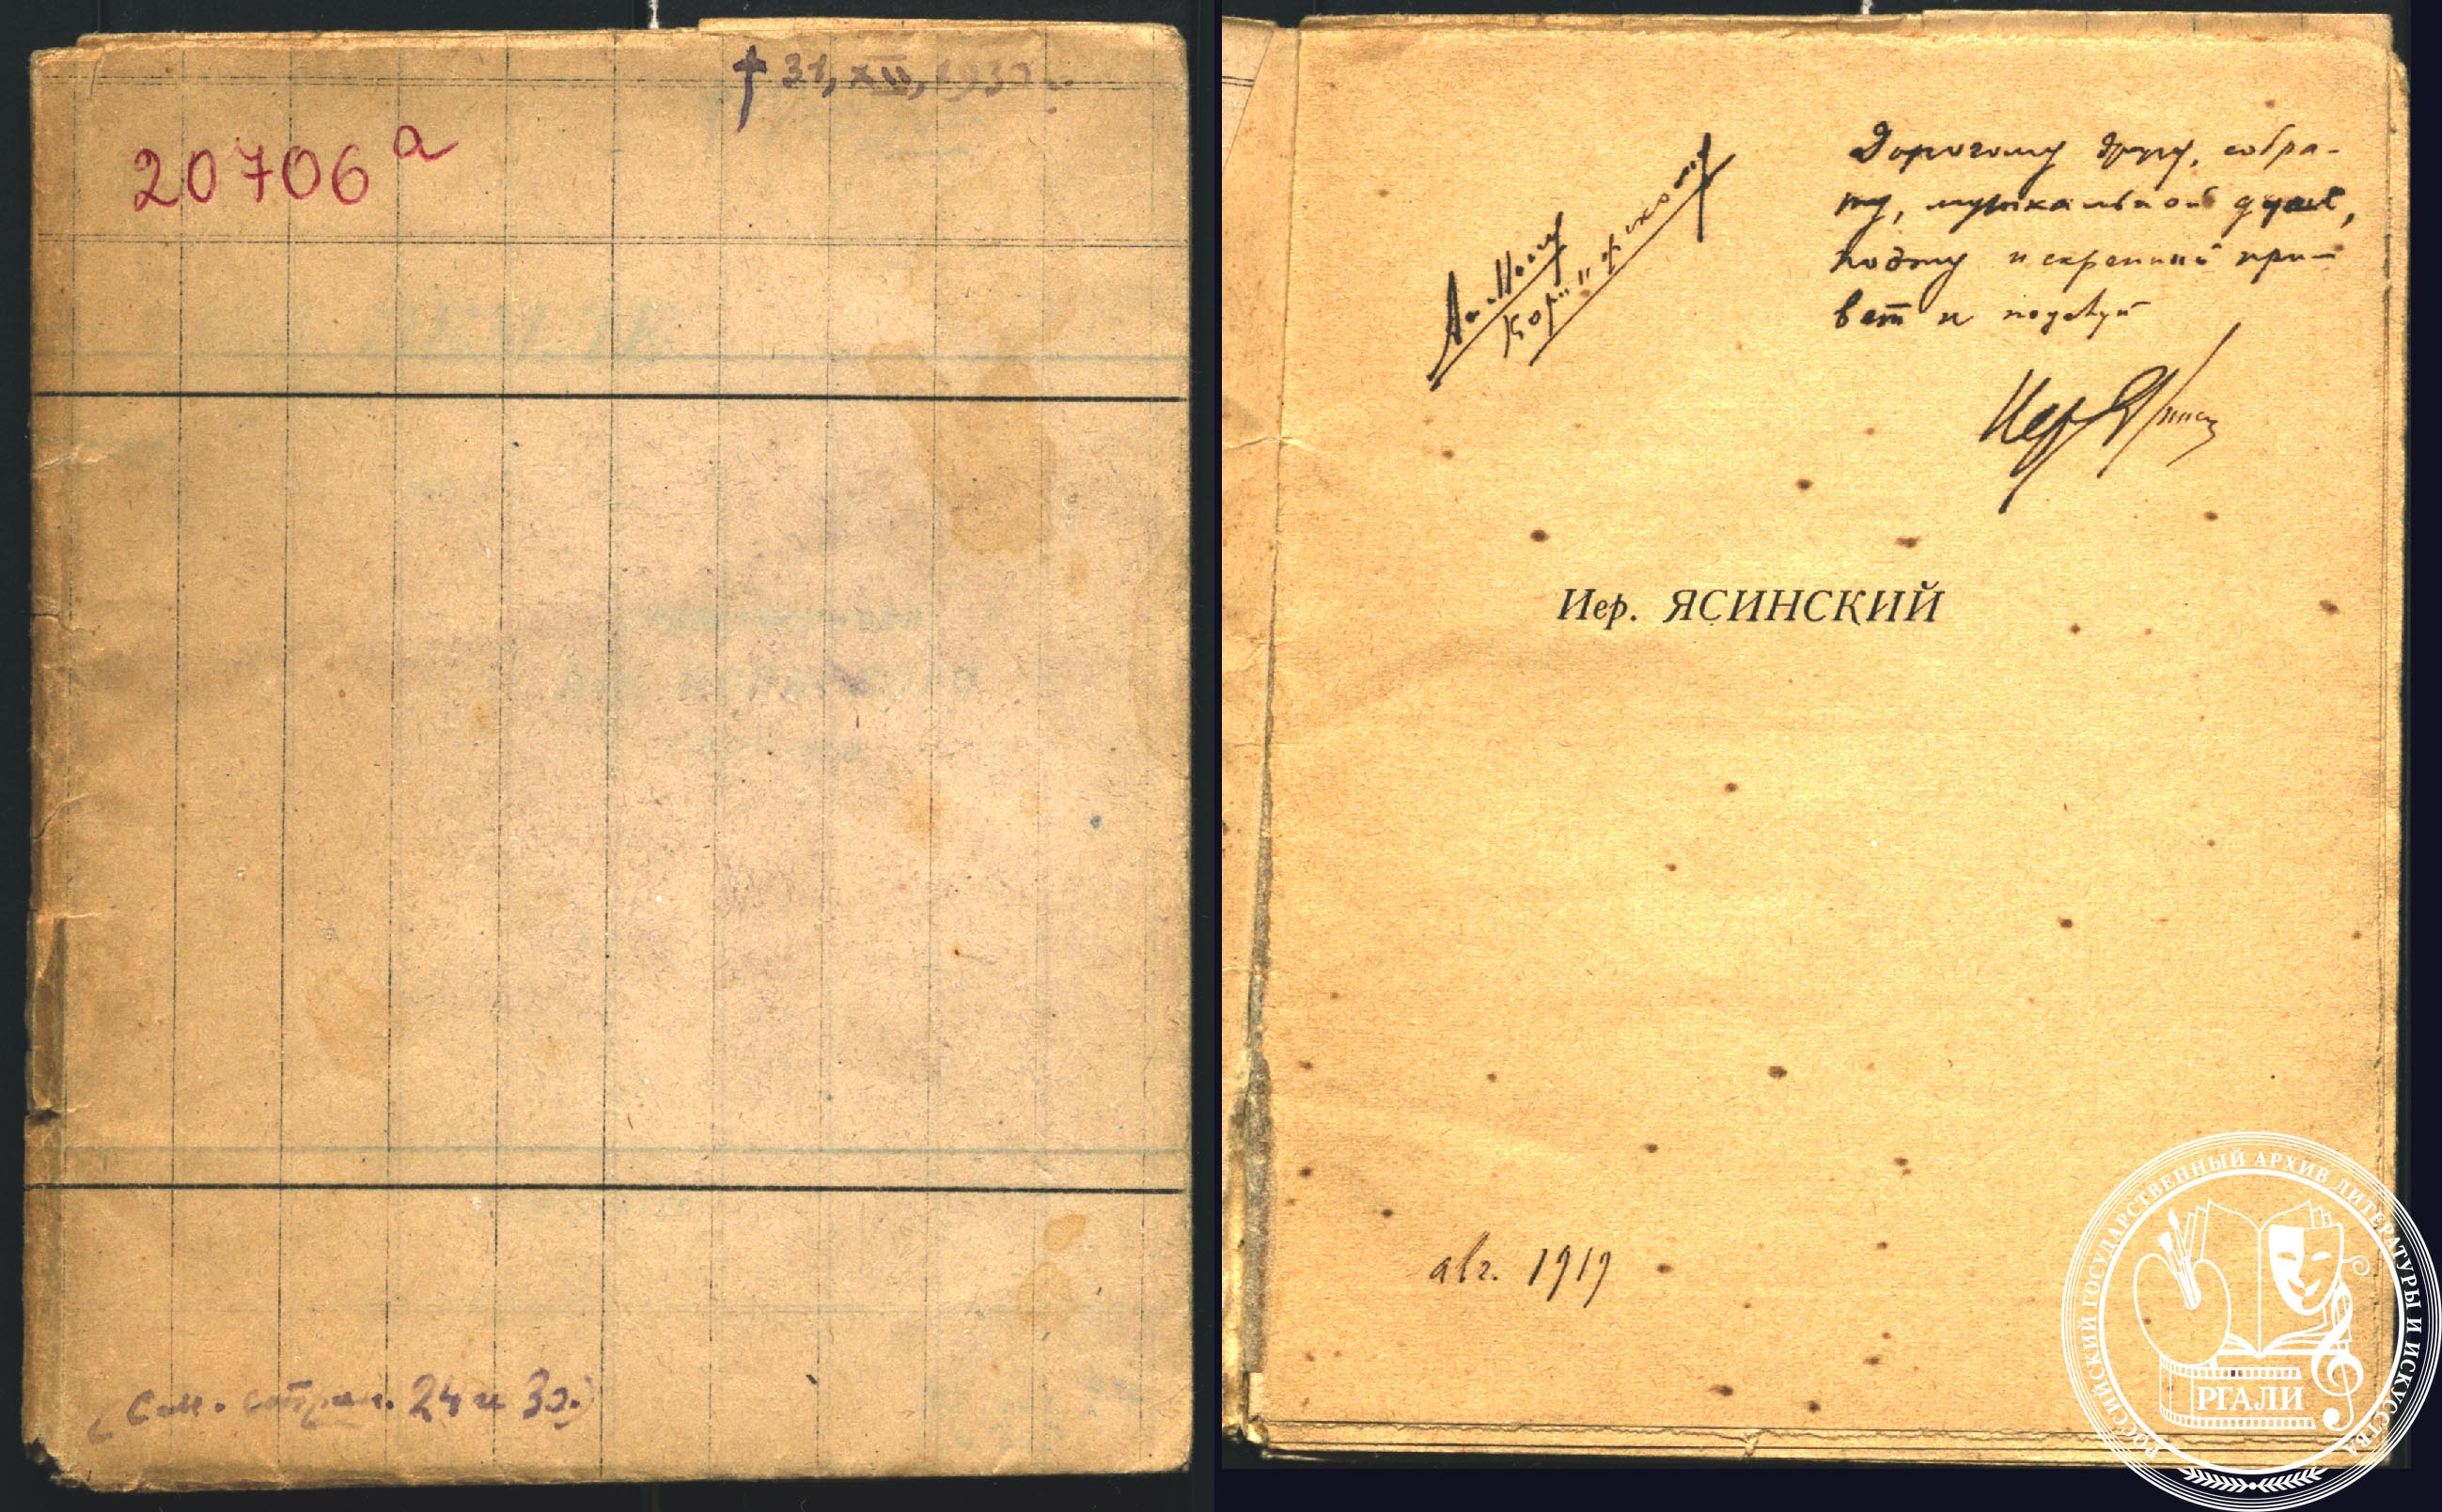 † 31, XII, 1930 г.
20706 а
(См. стран. 24 и 30.)
Дорогому другу, собра-
ту, музыкальной душе,
поэту искренний при-
вет и поцелуй
Иер Ясинс
Ап. Апол
Коринфскому
Иер. ЯСИНСКИЙ
авг. 1919
РОССИЙСКИЙ ГОСУДАРСТВЕННЫЙ АРХИВ ЛИТЕРАТУРЫ И ИСКУССТВА
РГАЛИ